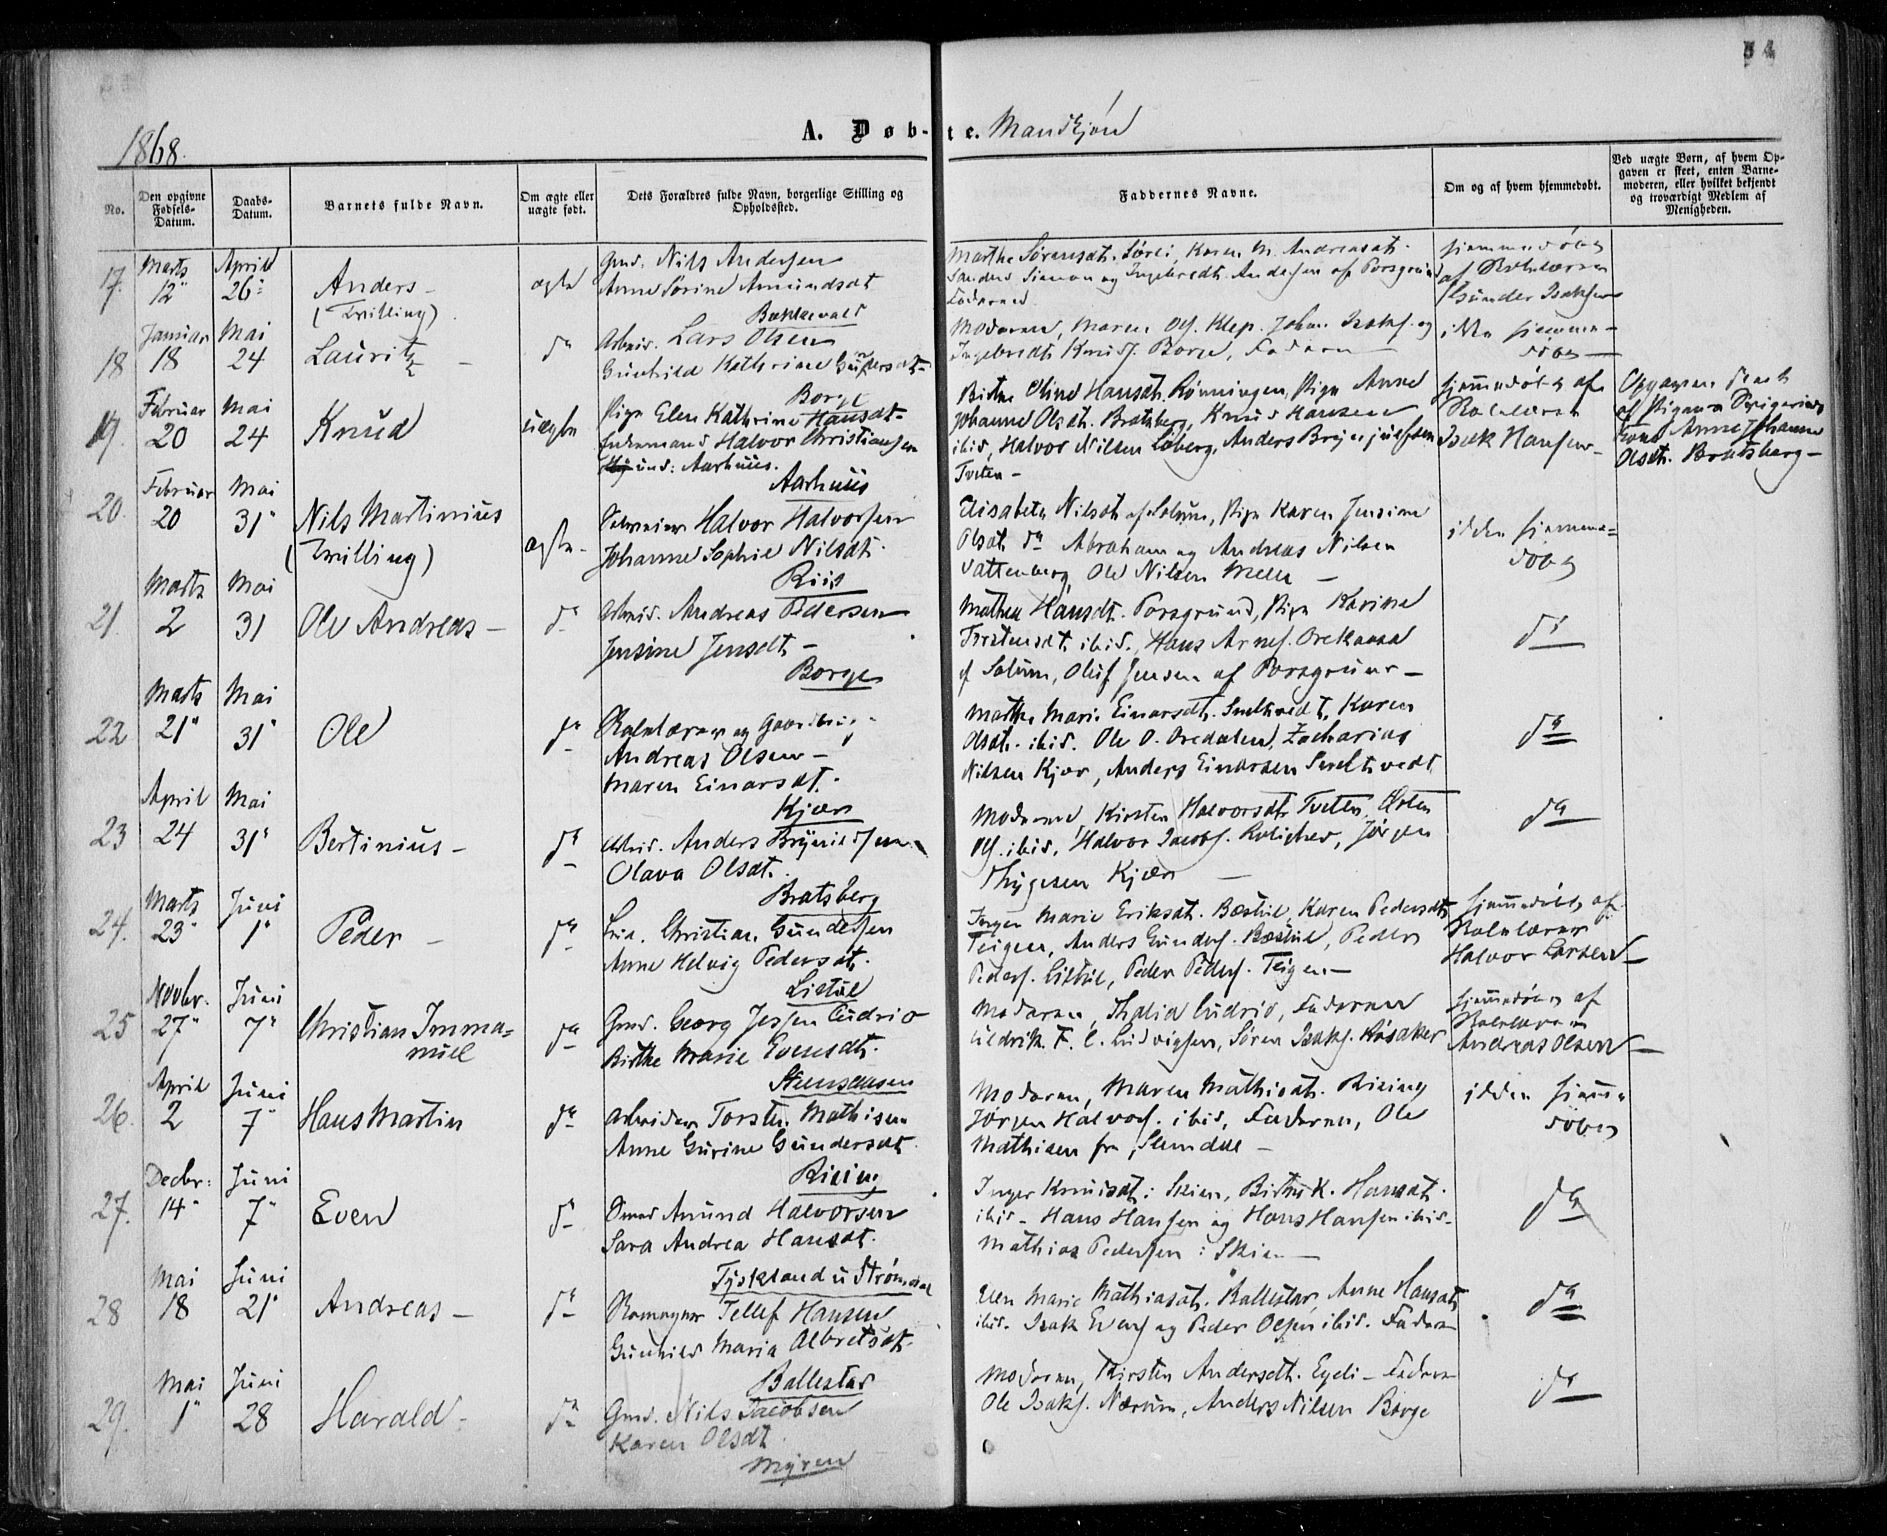 54
1868.
A. Døb-te. Mandkjøn
No.
Den opgivne Fødsels-Datum.
Daabs-Datum.
Barnets fulde Navn.
Om ægte eller uægte født.
Dets Forældres fulde Navn, borgerlige Stilling og Opholdssted.
Faddernes Navne.
Om og af hvem hjemmedøbt.
Ved uægte Børn, af hvem Opgaven er skeet, enten Barnemoderen, eller hvilket bekjendt og troværdigt Medlem af Menigheden.
17. Marts 12" April 26" Anders (Tvilling) ægte
Gmd. Nils Andersen
Anne Sørine Amundsdt
Bakkevold
Marthe Sørensdt. Sørli, Karen M. Andreasdt.
Sanders Simon og Ingebredt Andersen af Porsgrund
Faderen
hjemmedøbt
af Skolelærer
Gunder Isaksen
18 Januar 18 Mai 24 Lauritz - do
Arbeid. Lars Olsen
Gunhild Kathrine Gundersdt
Borge
Moderen, Maren Ols. Klep, Johan Isaks. og
Ingebredt Knuds. Borge, Faderen
ikke hjemme-
døbt
19. Februar 20 Mai 24 Knud uægte
Pige Elen Kathrine Hansdt.
Enkemand Halvor Christiansen
und: Aarhuus.
Aarhuus
Birthe Oline Hansdt. Rønningen, Pige Anne
Johanne Olsdt. Bratsberg, Knud Hansen
ibid, Halvor Nilsen Løberg, Anders Brynjulfsen
Tveten -
hjemmedøbt af
Skolelærer
Isak Hansen
Opgaven skeet
af Pigens Svigerinde
Kone Anne Johanne
Olsdt. Bratsberg -
20. Februar 20 Mai 31" Nils Martinius (Tvilling) ægte -
Halvor Halvorsen
Johanne Sophie Nilsdt.
Riis
Elisabeth Nilsdt af Solum, Pige Karen Jensine
Olsdt. do Abraham og Andreas Nilsen
Vattenberg, Ole Nilsen Melu -
ikke hjemme=
døbt
21. Marts 2 Mai 31 Ole Andreas - do
Arbeid. Andreas Pedersen
Jensine Jensdt -
Borge
Mathea Hansdt. Porsgrund, Pige Karine
Torstensdt ibid., Hans Arnes.
af Solum, Oluf Jensen af Porsgrund -
do
22 Marts 21" Mai 31" Ole do
Skolelærer og Gaardbr.
Andreas Olsen -
Maren Einarsdt.
Kjær
Marthe Marie Einarsdt. Smeltvedt, Karen
Olsdt. ibid. Ole O. Bredalen, Zacharias
Nilsen Kjær, Anders Einarsen Smeltvedt
do
23 April 24 Mai 31" Bertinius - do
Arbeid. Anders Brynildsen
Olava Olsdt.
Bratsberg
Moderen, Kirsten Halvorsdt. Tveten,
Ols. ibid, Halvor Jacobs. Rolighed, Jørgen
Thygesen Kjær -
do
24. Marts 23" Juni 1" Peder - do
Christian Gundersen
Anne Helvig Pedersdt.
Listul
Inger Marie Eriksdt. Bæstul, Karen Pedersdt
Teigen, Anders Gunders. Bæstul, Peder
Peders. Listul, Peder Peders. Teigen -
hjemmedøbt af
Skolelærer
Halvor Larsen -
25 Novbr. 27" Juni 7" Christian Imma-
nuel do
Gmd. Georg Jessen Cudrio
Birthe Marie Evensdt.
Stensaasen
Moderen, Thalia Cudrio, Faderen
F. C. Ludvigsen, Søren Isaks. Røsaker
hjemmedøbt af
Skolelærer
Andreas Olsen -
26. April 2 Juni 7" Hans Martin do
Arbeider Torsten Mathisen
Anne Gurine Gundersdt
Rising
Moderen, Maren Mathisdt. Rising
Jørgen Halvors. ibid, Faderen, Ole
Mathisen fra Slemdal -
ikke hjemme
døbt
27. Decbr: 14" Juni 7" Even do
Amund Halvorsen
Sara Andrea Hansdt.
Tyskland u Strømdal
Inger Knudsdt i Skien, Birthe K. Hansdt.
ibid - Hans Hansen og Hans Hansen ibid -
Mathias Pedersen i Skien -
do
28 Mai 18 Juni 21" Andreas - do
Skomager Tellef Hansen
Gunhild Maria Albretsdt.
Ballestad
Elen Marie Mathiasdt. Ballestad, Anne Hansdt
ibid. Isak Evens. og Peder Olsen ibid. Faderen
do
29. Mai 1" Juni 28 Harald - do
Gmd. Nils Jacobsen
Karen Olsdt
Myren
Moderen, Kirsten Andersdt. Eydi - Faderen
Ole Isaks. Nærum, Anders Nilsen Borge
do